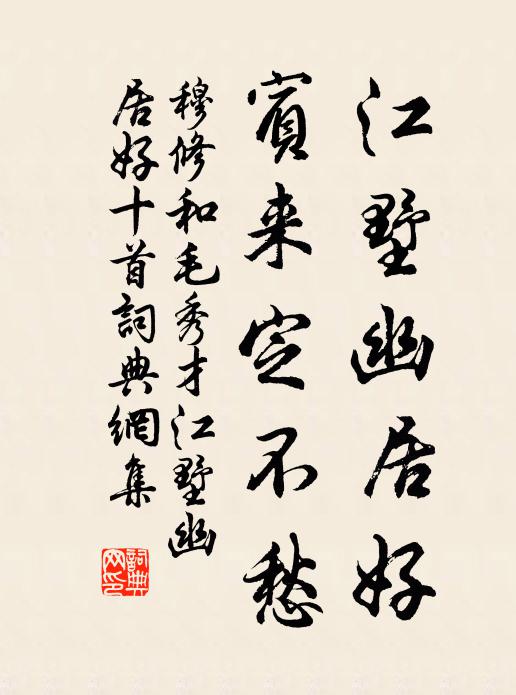 江墅幽居好
賓来定不愁
穆修和毛秀才江墅幽
居好十首詞典網集
詞典网印